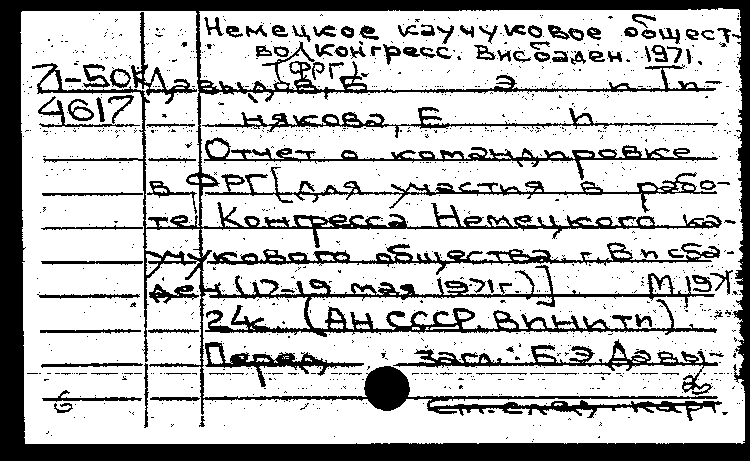 Немецкое каучуковое общест-
во. Конгресс. Висбаден. 1971.
(ФРГ).
71-50К Давыдов, Б Э и Гп-
4617 някова, Е П
Отчет о командировке
в ФРГ [для участия в рабо-
те Конгресса Немецкого ка-
учукового общества. г. Висба-
ден (17-19 мая 1971г.)]. М, 197
24с. (АН СССР. ВИНИТИ).
Перед загл.: Б.Э. Давы-
См. след. карт.